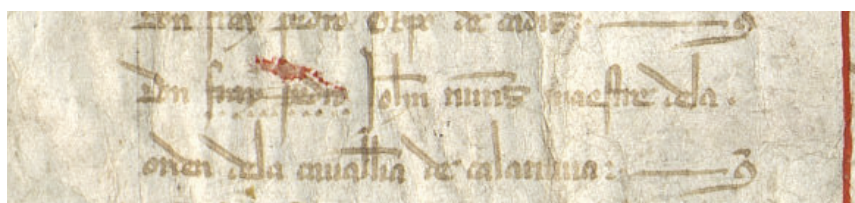 Don fray pedro obpo de cadis
Don fray pedro Johan nunes maestre dela
orden dela cauallia de calatraua